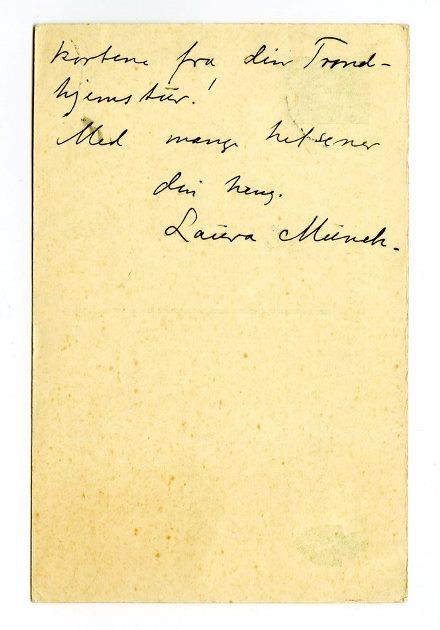 kortene fra din Trond-
hjemstür!
Med mange hilsener
din heng.
Laura Münch.